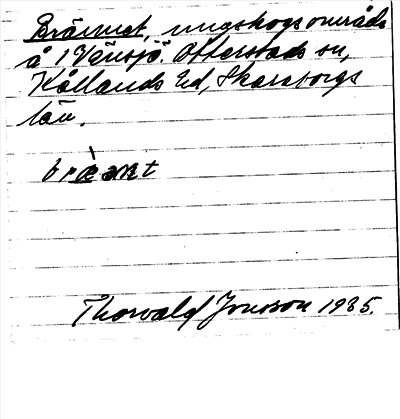 Brännet, ungskogsområde
å 1 Vänsjö. Otterstads sn,
Kållands hd, Skaraborgs
län.
Thorvald Jonsson 1935.